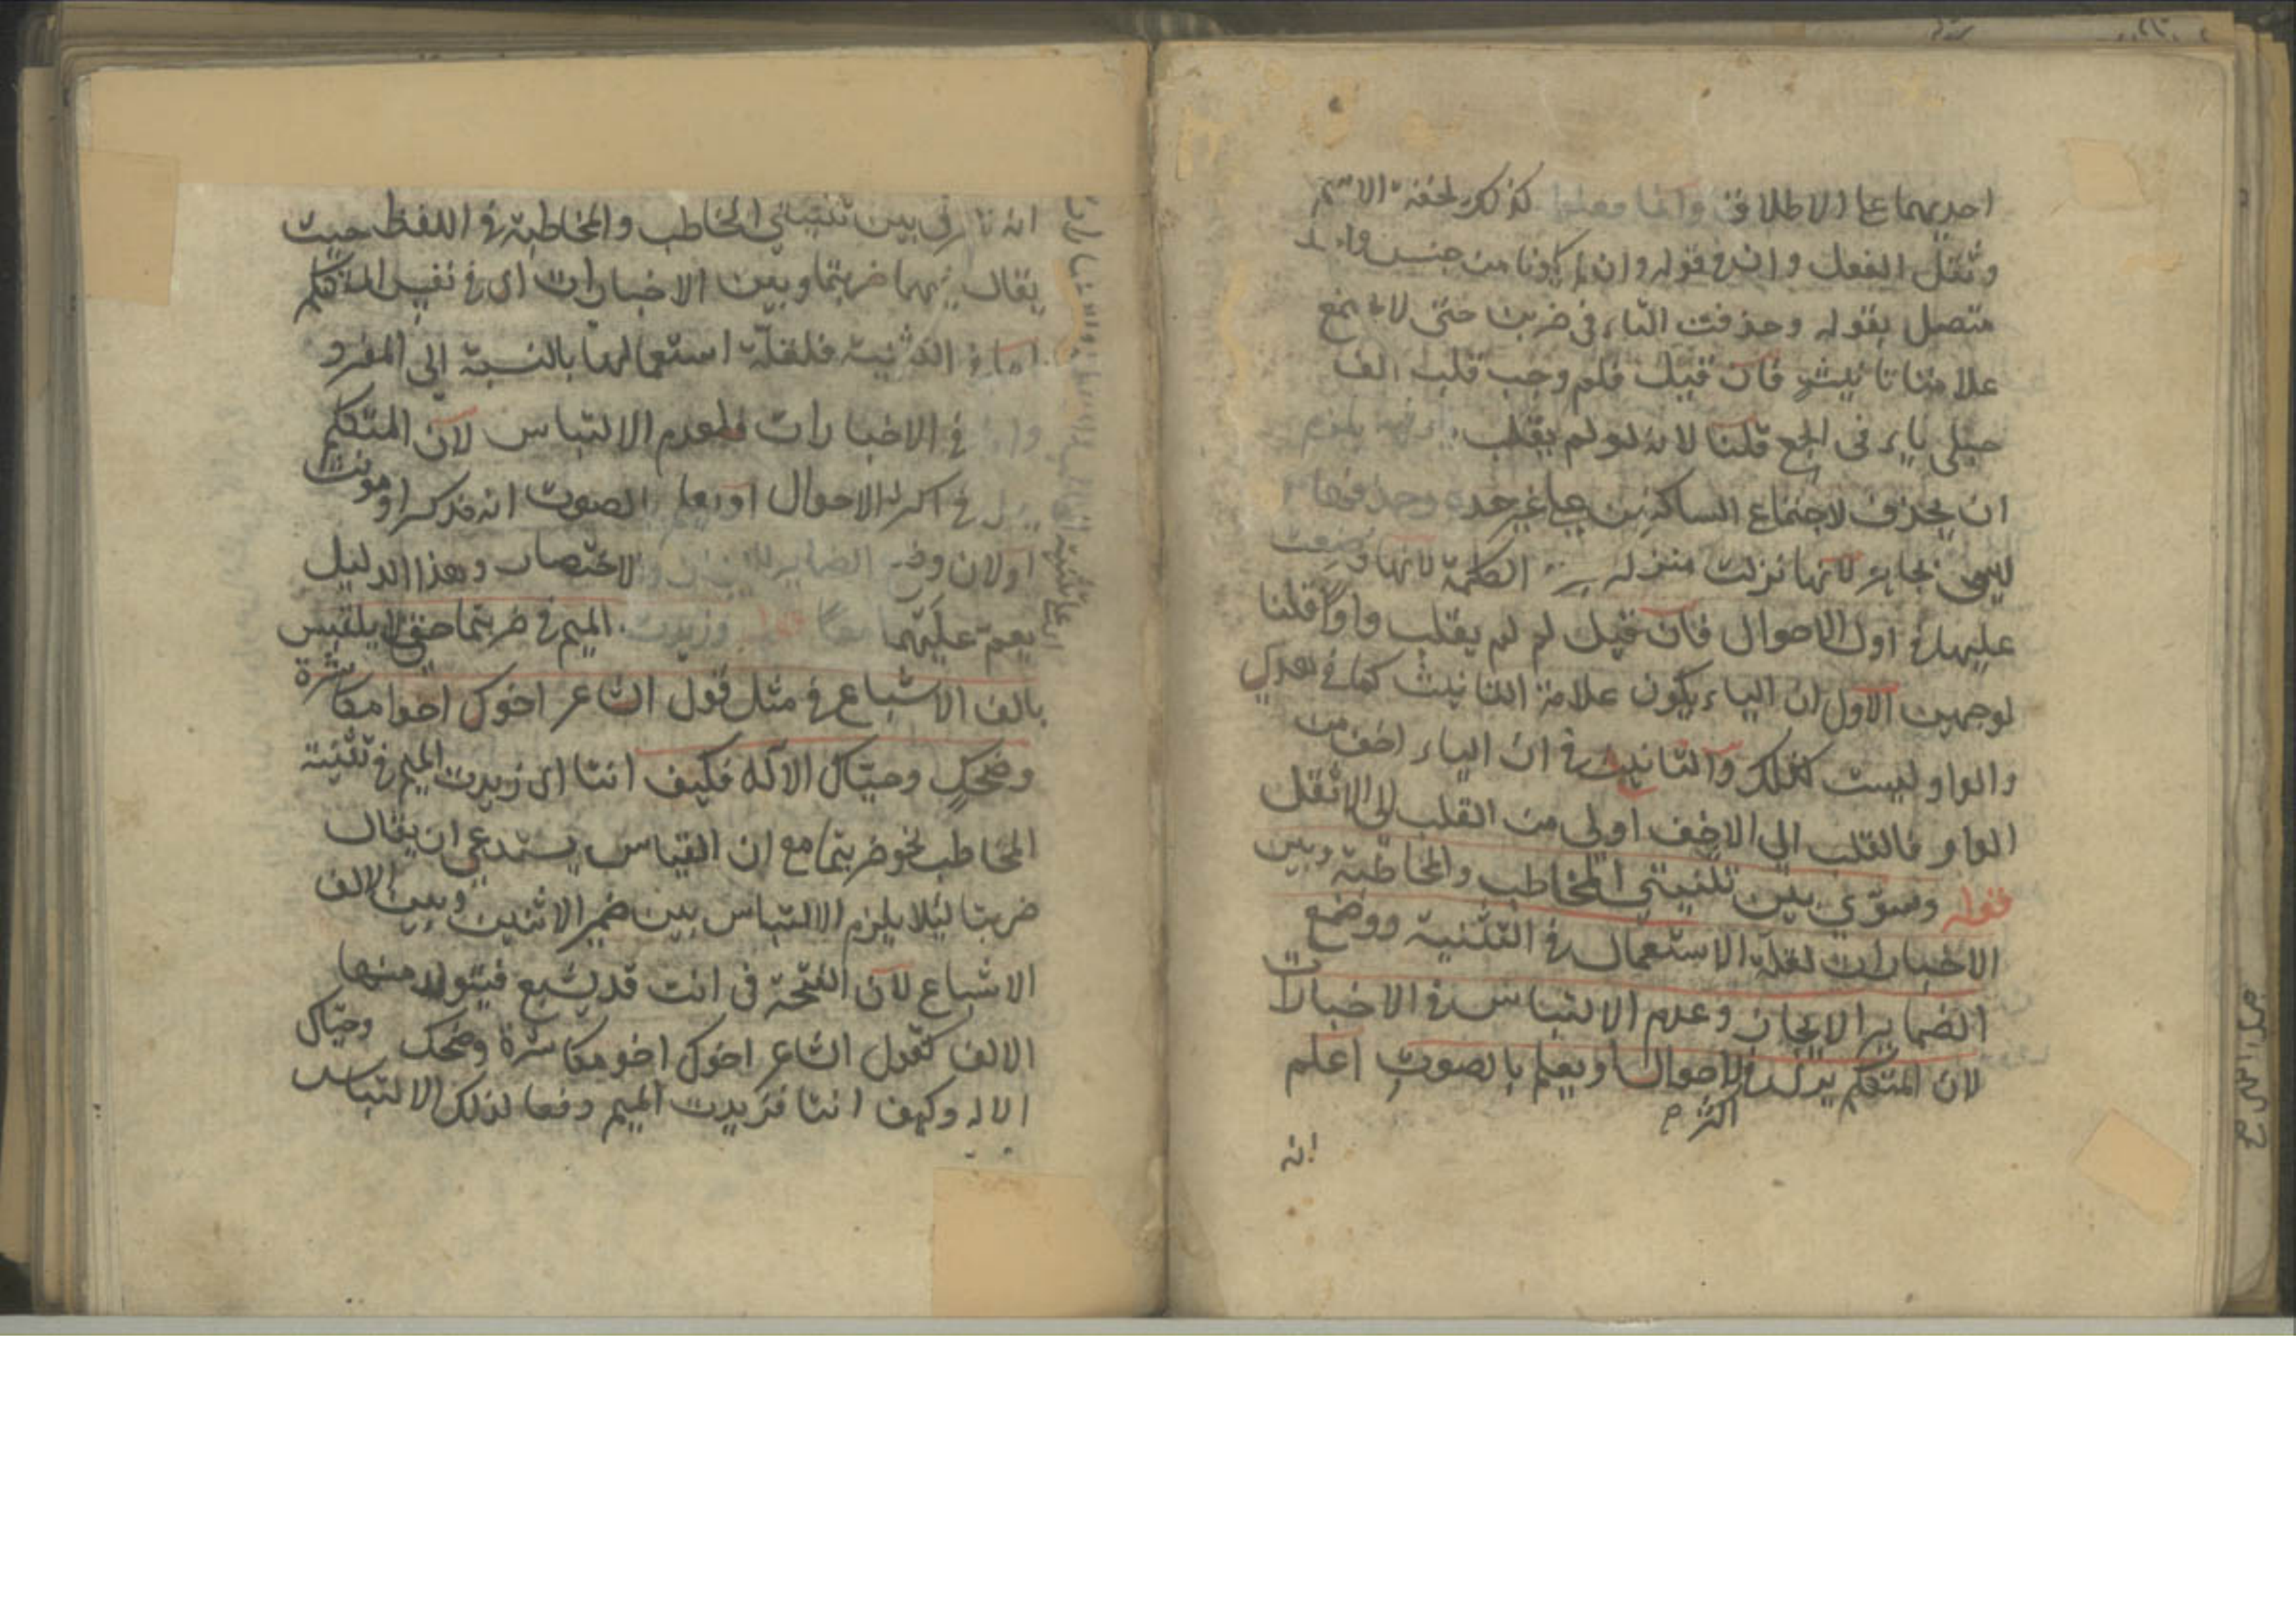 احديهما على الاطلاق وانما فعلوا كذلك لخفة الاسم
وثقل الفعل وان في قوله وان لم يكونا من جنس واحد
متصل بقوله وحذفت التاء في ضربن حتى لا يجتمع
علامتا تانيث فان قيل فلم وجب قلب الف
حبلى ياء في الجمع قلنا لانه لو لم يقلب يلزم
ان يحذف لاجتماع الساكنين على غير حده وحذفها
ليس بجايز لانها نزلت منزلة الكلمة لانها وضعت
عليها في اول الاحوال فان قيل لم لم يقلب واوا قلنا
لوجهين الاول ان الياء يكون علامة التانيث كما في تضربين
والواو ليست كذلك والثاني ان الياء اخف من
الواو فالقلب الى الاخف اولى من القلب الى الاثقل
قوله وسوي بين تثنيتي المخاطب والمخاطبة وبين
الاخبارات لقلة الاستعمال في التثنية ووضع
الضماير للايجاز وعدم الالتباس في الاخبارات
لان المتكلم يرى في الاحوال او يعلم بالصوت اعلم
اكثر
انه
بين تثنيتي المخاطب والمخاطبة في اللفظ حيث
يقال فيهما ضربتما وبين الاخبارات اي في نفس المتكلم
اما في التثنية فلقلة استعمالها بالنسبة الى المفرد
في الاخبارات فلعدم الالتباس لان المتكلم
في اكثر الاحوال او يعلم بالصوت انه مذكر او مونث
او لان وضع الضماير للاختصار وهذا الدليل
يعم عليهما معا قوله وزيدت الميم في ضربتما حتى لا يلتبس
بالف الاشباع في مثل قول الشاعر اخوك اخو مكاشرة
وضحك وحياك الاله فكيف انتا اي زيدت الميم في تثنية
المخاطب نحو ضربتما مع ان القياس يستدعي ان يقال
ضربتا ليلا يلزم الالتباس بين ضمير الاثنين وبين الالف
الاشباع لان الفتحة في انت قد يشبع فيتولد منها
الالف كقول الشاعر اخوك اخو مكاشرة وضحك وحياك
الاله وكيف انتا فزيدت الميم دفعا لذلك الالتباس